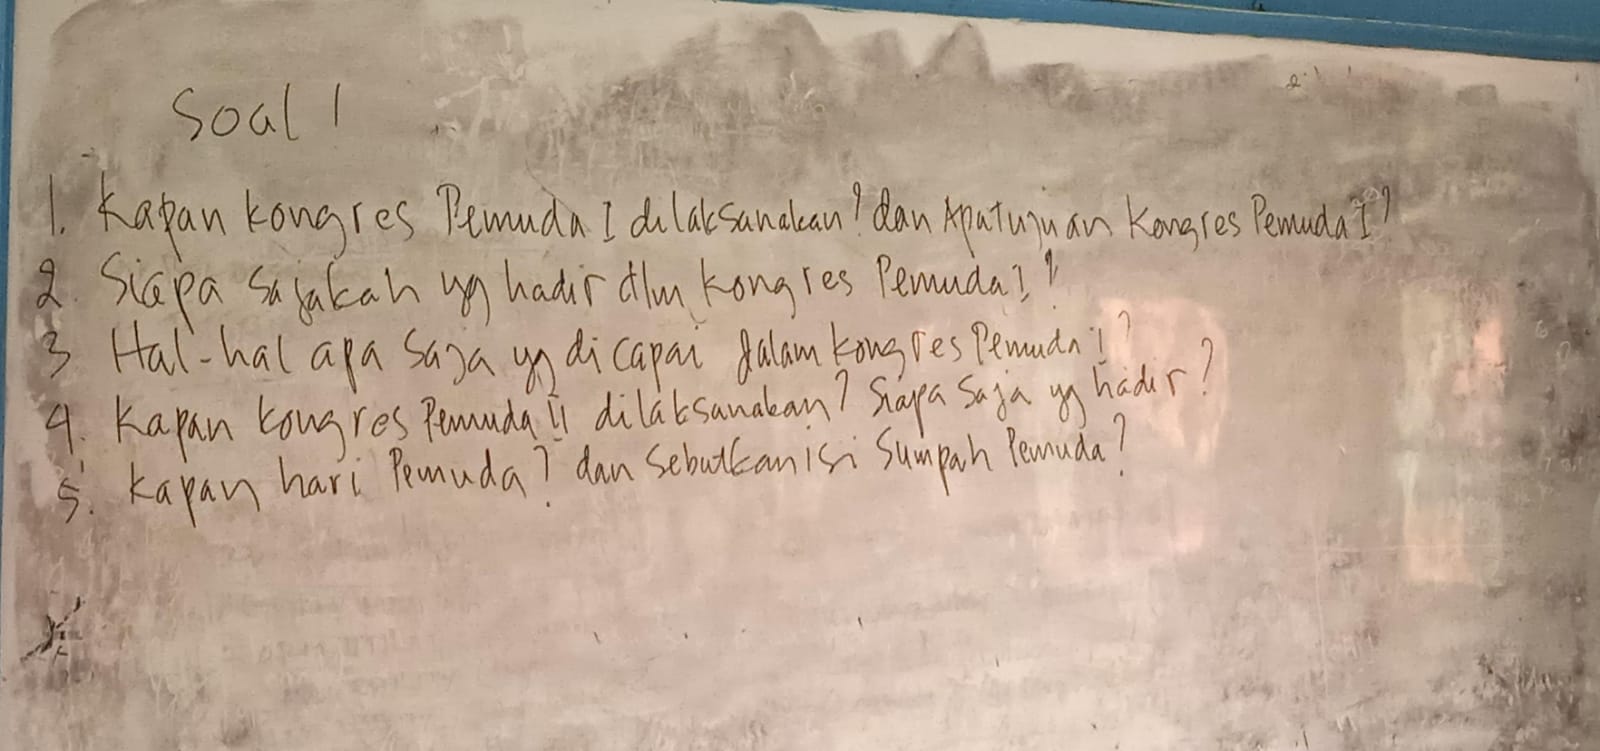 Soal 1
1. Kapan kongres Pemuda I dilaksanakan? dan Apa tujuan Kongres Pemuda I?
2. Siapa sajakah yg hadir dlm kongres Pemuda I?
3 Hal-hal apa saja yg dicapai dalam kongres Pemuda I?
4. Kapan kongres Pemuda II dilaksanakan? Siapa saja yg hadir?
5. Kapan hari Pemuda? dan Sebutkan isi Sumpah Pemuda?